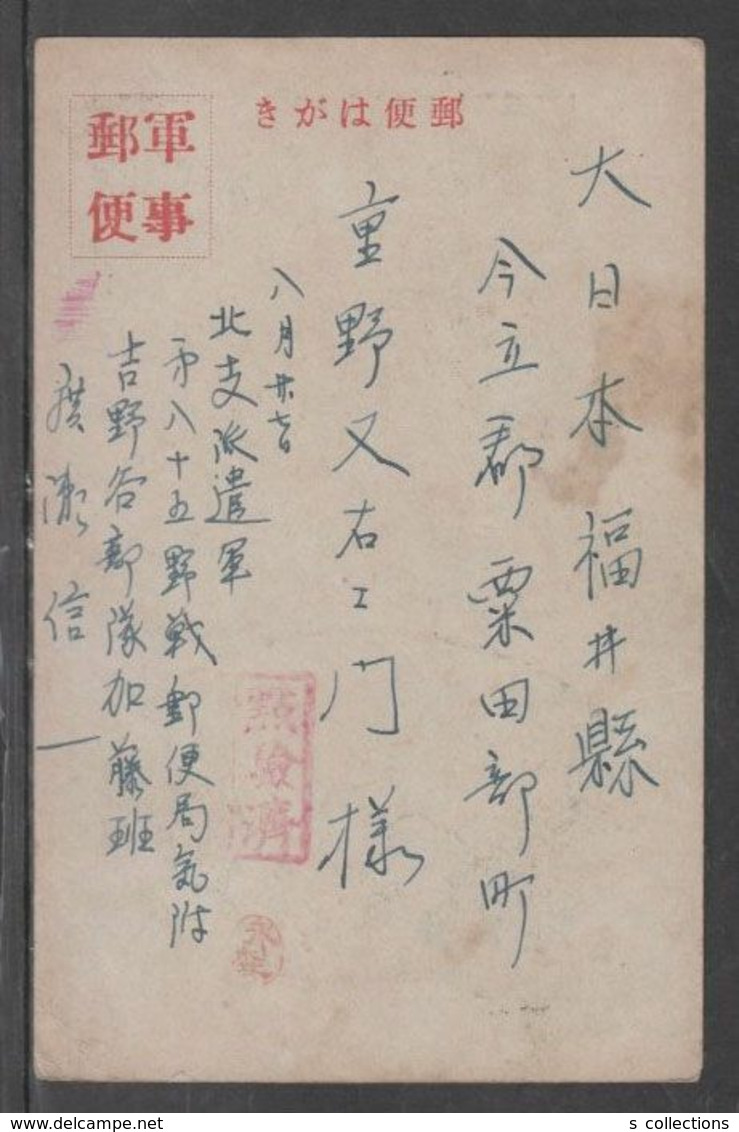 郵便はがき
軍事
郵便
大日本福井縣
今立郡粟田部町
重野又右エ門様
八月廿七日
北支派遣軍
第八十五野戦郵便局気附
吉野谷部隊加藤班
廣瀬信一
點檢濟
delcampe.net
s collections